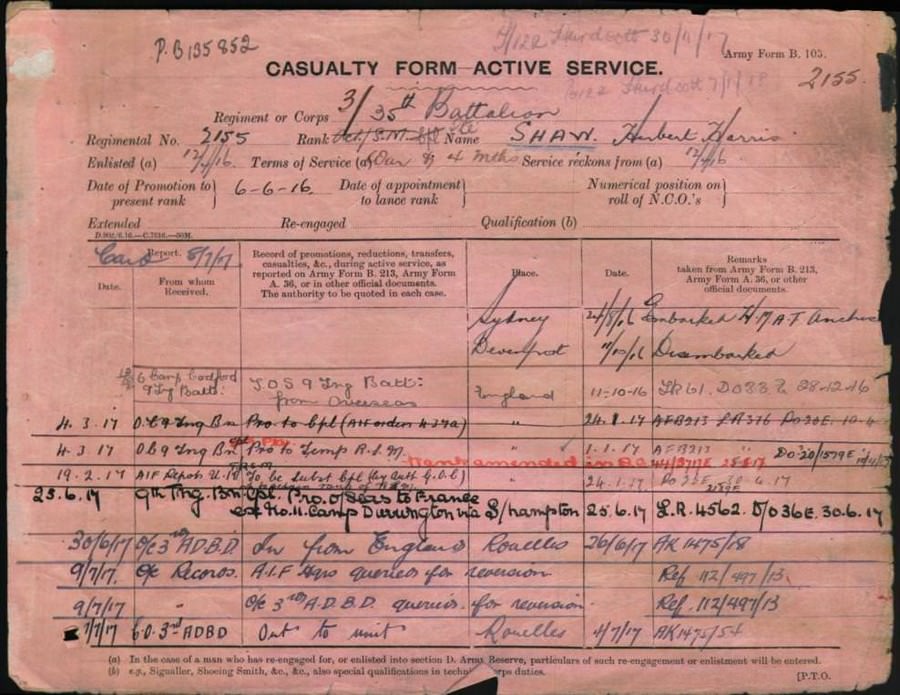 P.B135852
Hurdcott 30/11/17
Army Form B. 103.
CASUALTY FORM—ACTIVE SERVICE.
Hurdcott 7/1/18
2155.
Regiment or Corps 3/35th Battalion
Regimental No. 2155 Rank Name SHAW. Herbert Harris
Enlisted (a) 12/4/16. Terms of Service (a) War & 4 mths Service reckons from (a) 12/4/16
Date of Promotion to present rank } 6-6-16. Date of appointment to lance rank } Numerical position on roll of N.C.O.'s }
Extended Re-engaged Qualification (b)
Report. 8/7/17
Date. From whom Received. Record of promotions, reductions, transfers, casualties, &c., during active service, as reported on Army Form B. 213, Army Form A. 36, or in other official documents. The authority to be quoted in each case. Place. Date. Remarks taken from Army Form B. 213, Army Form A. 36, or other official documents.
Sydney 24/8/16 Embarked H.M.A.T.
Devonport 11/10/16 Disembarked
6 Camp Codford
9 Tng Battn. T.O.S 9 Tng Batt: from Overseas England 11-10-16 28-12-16
4.3.17 O.C 9 Tng Bn Pro to Cpl (AIF orders 437a) " 24.1.17 AFB213
4.3.17 O.C 9 Tng Bn Pro to Temp R.S.M. " 1.1.17 AFB213 " DO 20/1579E
Rank amended in
19.2.17 AIF Depots U.K To be subst Cpl (by auth G.O.C) " 24.1.17
25.6.17 9th Tng. Bn Cpl. Pro. O/Seas to France
ex No.11. Camp Durrington via S/hampton 25.6.17 L.R. 4562. D/O36E. 30.6.17
30/6/17 O/c 3rd ADBD. In from England Rouelles 26/6/17 AK 1475/18
9/7/17. O/c Records. A.I.F Hqrs queries for reversion Ref 112/497/13.
9/7/17 " O/c 3rd A.D.B.D. queries for reversion Ref. 112/497/13
7/7/17 C.O. 3rd ADBD Out to unit Rouelles 4/7/17 AK1475/54
(a) In the case of a man who has re-engaged for, or enlisted into section D. Army Reserve, particulars of such re-engagement or enlistment will be entered.
(b) e.g., Signaller, Shoeing Smith, &c., &c., also special qualifications in technical Corps duties.
[P.T.O.